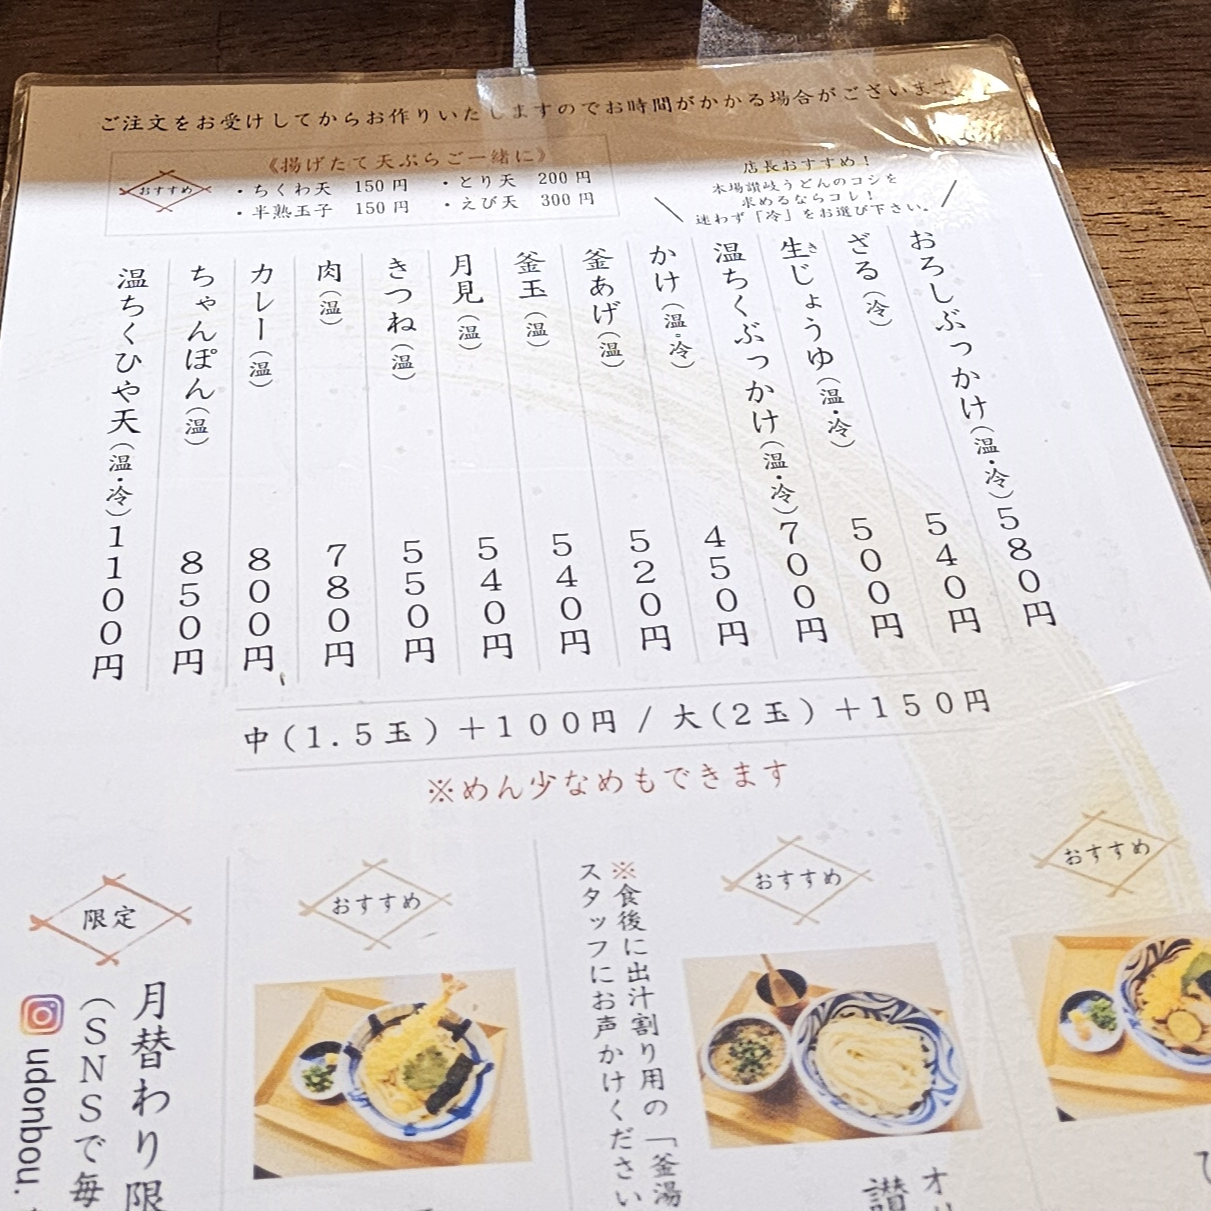 ご注文をお受けしてからお作りいたしますのでお時間がかかる場合がございます
おすすめ
《揚げたて天ぷらご一緒に》
・ちくわ天 150円 ・とり天 200円
・半熟玉子 150円 ・えび天 300円
店長おすすめ!
本場讃岐うどんのコシを
求めるならコレ!
迷わず「冷」をお選び下さい。
おろしぶっかけ(温・冷)580円
ざる(冷) 540円
生じょうゆ(温・冷) 500円
き
温ちくぶっかけ(温・冷)700円
かけ(温・冷) 450円
釜あげ(温) 520円
釜玉(温) 540円
月見(温) 540円
きつね(温) 550円
肉(温) 780円
カレー(温) 800円
ちゃんぽん(温) 850円
温ちくひや天(温・冷)1100円
中(1.5玉)+100円 / 大(2玉)+150円
※めん少なめもできます
おすすめ
おすすめ
オリ
讃
※食後に出汁割り用の「釜湯
スタッフにお声かけください
おすすめ
限定
月替わり限
(SNSで毎
udonbou.